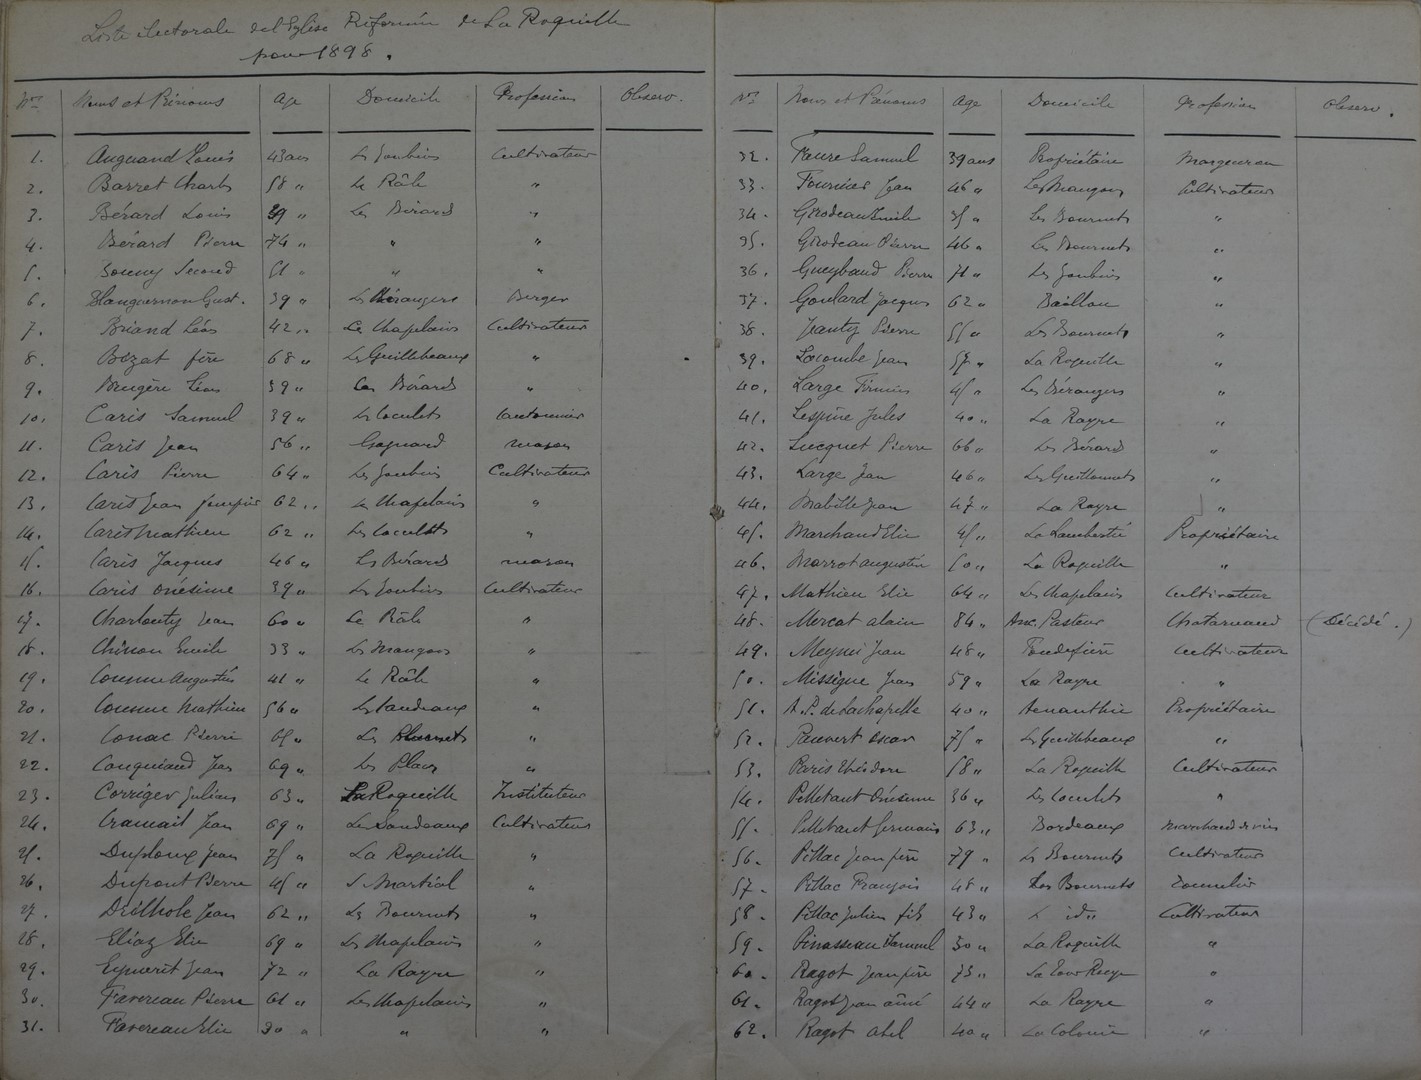 Liste électorale de l'Eglise Réformée de La Roquille
pour 1898.
Nos Noms et Prénoms Age Domicile Profession Observ.
1. Auguand Louis 43 ans Les Joubins Cultivateur
2. Barret Charles 58 " Le Râle "
3. Bérard Louis 39 " Les Bérards "
4. Bérard Pierre 74 " " "
5. Bonny Second 51 " " "
6. Gust. 39 " Les Bérangers Berger
7. Briand Léon 42 " Les Chapelains Cultivateur
8. Bezat père 68 " Les Guillebeaux "
9. Brugère Léon 39 " Les Bérards "
10. Caris Samuel 39 " Les Coculets Cantonnier
11. Caris Jean 56 " Gagnard maçon
12. Caris Pierre 64 " Les Joubins Cultivateur
13. Caris Jean 62 " Les Chapelains "
14. Caris Mathieu 62 " Les Coculets "
15. Caris Jacques 46 " Les Bérards maçon
16. Caris Onésime 39 " Les Joubins Cultivateur
17. Charlouty Jean 60 " Le Râle "
18. Chinon Emile 33 " Les Mangons "
19. Coumu Augustin 41 " Le Râle "
20. Coumu Mathieu 56 " Les Landeaux "
21. Conac Pierre 65 " Les "
22. Couquiaud Jean 69 " Les Places "
23. Corriger Julien 63 " La Roquille Instituteur
24. Cramail Jean 69 " Les Landeaux Cultivateur
25. Duploux Jean 75 " La Roquille "
26. Dupont Pierre 45 " St Martial "
27. Deilhole Jean 62 " Les Bournets "
28. Eliaz Elie 69 " Les Chapelains "
29. Eymerit Jean 72 " La Rayre "
30. Favereau Pierre 61 " Les Chapelains "
31. Favereau Elie 30 " " "
Nos Noms et Prénoms Age Domicile Profession Observ.
32. Faure Samuel 39 ans Propriétaire Margueron
33. Fournier Jean 46 " Les Mangons Cultivateur
34. Girodeau Emile 35 " Les Bournets "
35. Girodeau Pierre 46 " Les Bournets "
36. Gueybaud Pierre 71 " Les Joubins "
37. Goulard Jacques 62 " Baillou "
38. Jeanty Pierre 55 " Les Bournets "
39. Lacombe Jean 57 " La Roquille "
40. Large Firmin 45 " Les Bérangers "
41. Lespine Jules 40 " La Rayre "
42. Lucquet Pierre 66 " Les Bérards "
43. Large Jean 46 " Les Guillonnets "
44. Mabille Jean 47 " La Rayre "
45. Marchand Elie 45 " La Lambertie Propriétaire
46. Marrot Augustin 60 " La Roquille "
47. Mathieu Elie 64 " Les Chapelains Cultivateur
48. Mercat Alain 84 " Anc. Pasteur Chatarnaud (Décédé.)
49. Meynié Jean 48 " Fondefière Cultivateur
50. Missègue Jean 59 " La Rayre "
51. A. P. de Lachapelle 40 " Acnanthie Propriétaire
52. Pauvert Oscar 75 " Les Guillebeaux "
53. Paris Théodore 58 " La Roquille Cultivateur
54. Pelletant Onésime 36 " Les Coculets "
55. Pelletant Germain 63 " Bordeaux Marchand de vin
56. Pillac Jean père 79 " Les Bournets Cultivateur
57. Pillac François 48 " Les Bournets Tonnelier
58. Pillac Julien fils 43 " " id " Cultivateur
59. Pinasseau Samuel 30 " La Roquille "
60. Ragot Jean père 73 " La Tour Rouge "
61. Ragot Jean aîné 44 " La Rayre "
62. Ragot Abel 40 " La Colonie "